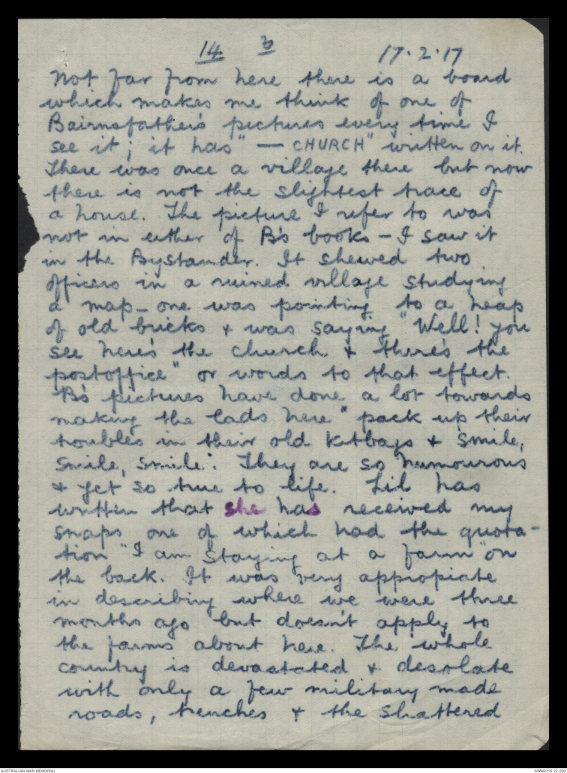 14 3 17.2.17
Not far from here there is a board
which makes me think of one of
Bairnsfather's pictures every time I
see it; it has "— CHURCH" written on it.
There was once a village there but now
there is not the slightest trace of
a house. The picture I refer to was
not in either of B's books – I saw it
in the Bystander. It shewed two
officers in a ruined village studying
a map – one was pointing to a heap
of old bricks & was saying "Well! you
see here's the church & there's the
postoffice" or words to that effect.
B's pictures have done a lot towards
making the lads here "pack up their
troubles in their old kitbags & smile,
smile, smile". They are so humourous
& yet so true to life. Lil has
written that she has received my
snaps one of which had the quota-
tion "I am staying at a farm" on
the back. It was very appropiate
in describing where we were three
months ago but doesn't apply to
the farms about here. The whole
country is devastated & desolate
with only a few military made
roads, trenches & the shattered
AUSTRALIAN WAR MEMORIAL